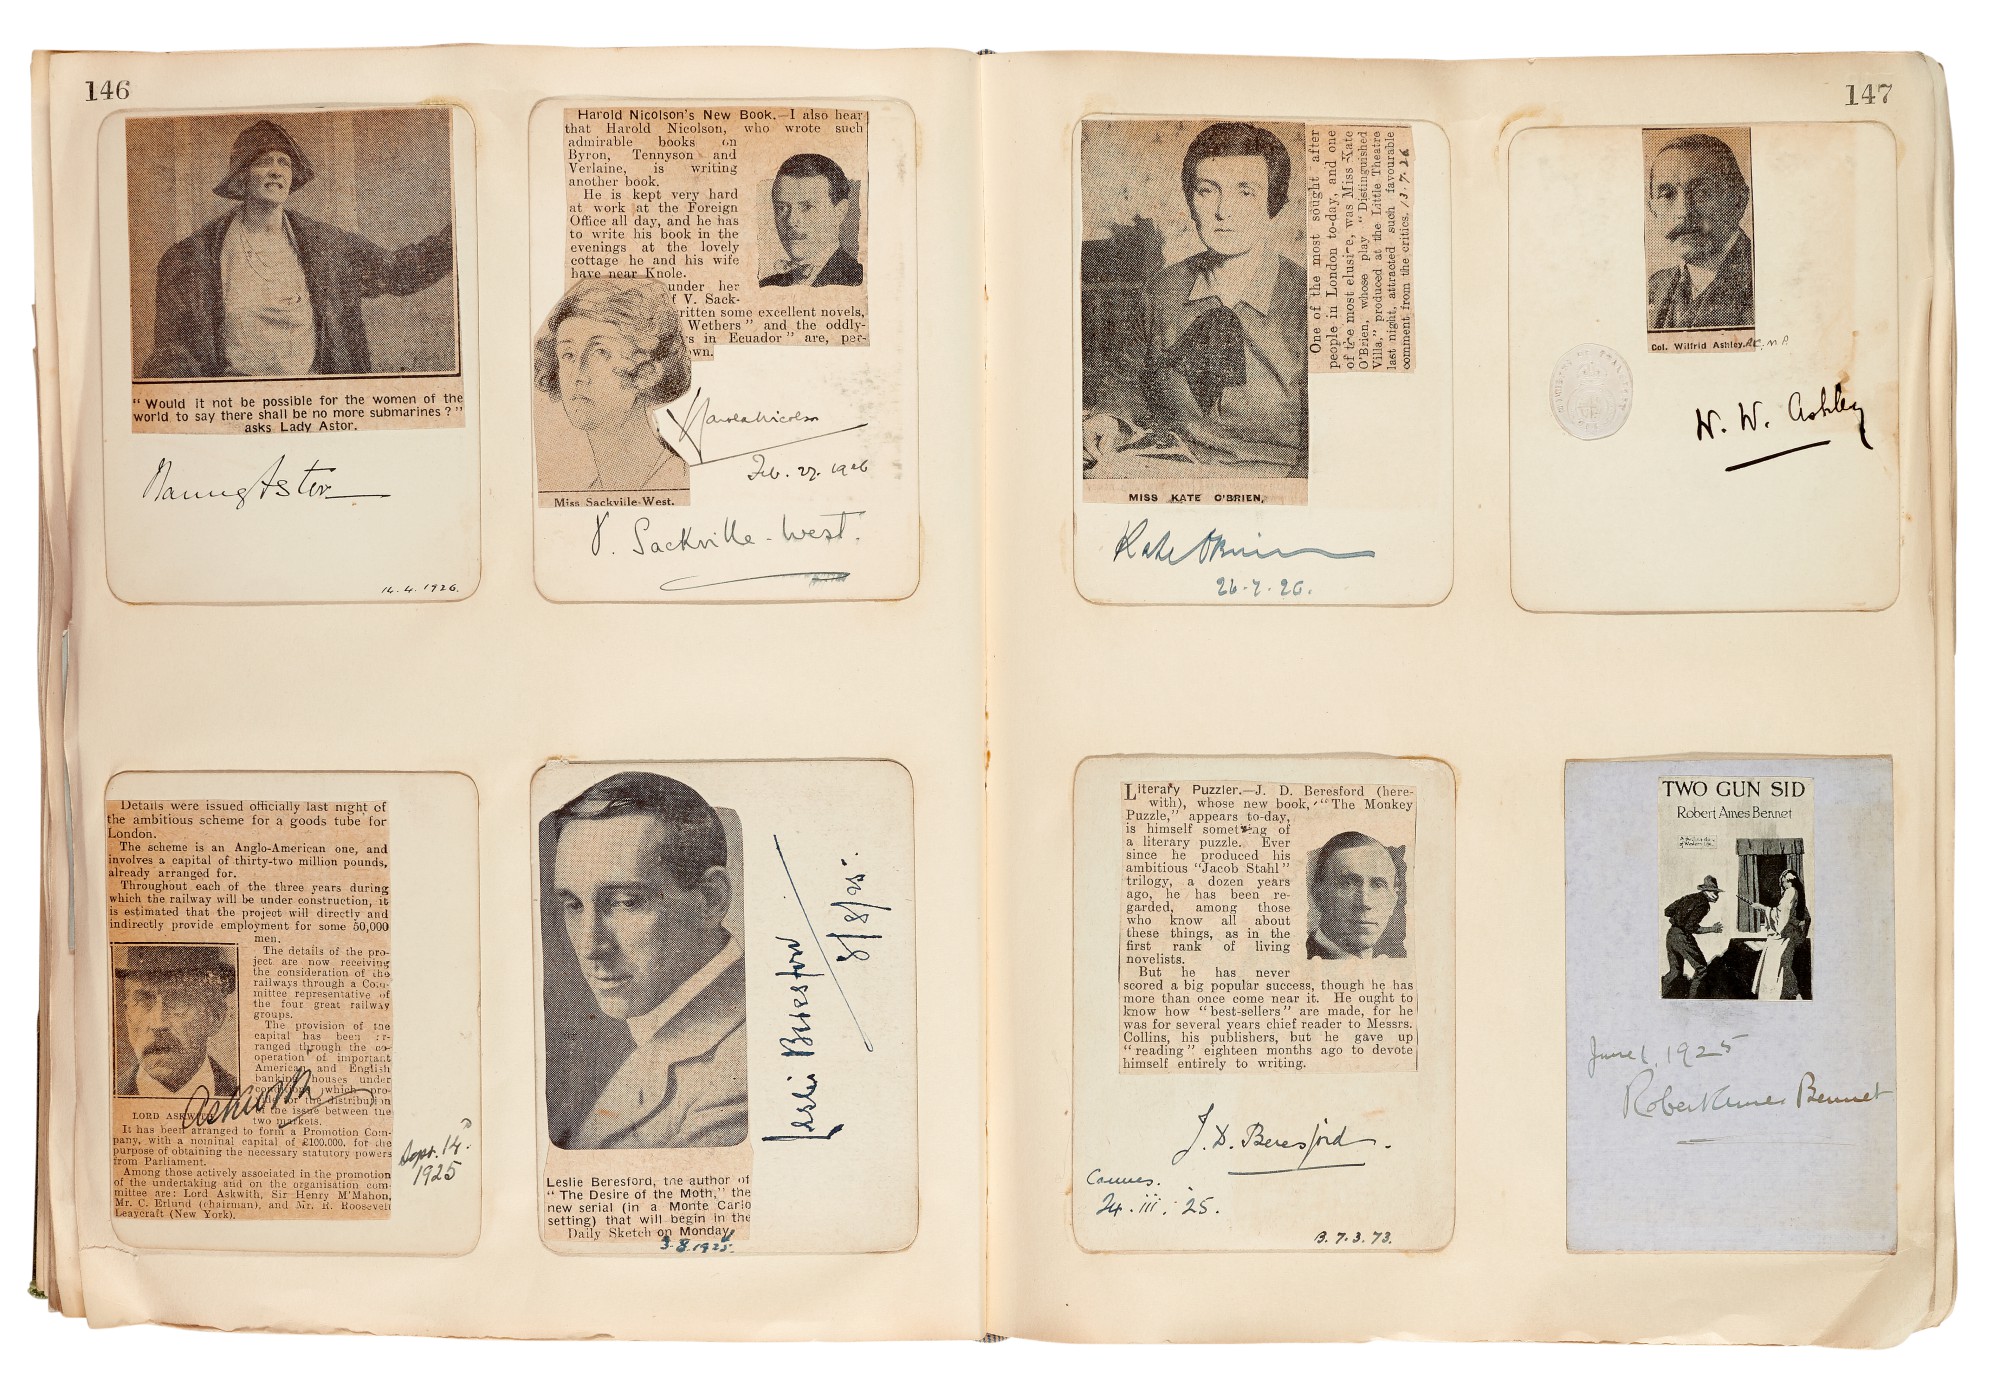 146
"Would it not be possible for the women of the
world to say there shall be no more submarines?"
asks Lady Astor.
Nancy Astor
14.4.1926.
Harold Nicolson's New Book.—I also hear
that Harold Nicolson, who wrote such
admirable books on
Byron, Tennyson and
Verlaine, is writing
another book.
He is kept very hard
at work at the Foreign
Office all day, and he has
to write his book in the
evenings at the lovely
cottage he and his wife
have near Knole.
under her
f V. Sack-
ritten some excellent novels,
Wethers" and the oddly-
rs in Ecuador" are, per-
own.
Harold Nicolson
Feb. 27. 1926
Miss Sackville-West.
V. Sackville-West.
Details were issued officially last night of
the ambitious scheme for a goods tube for
London.
The scheme is an Anglo-American one, and
involves a capital of thirty-two million pounds,
already arranged for.
Throughout each of the three years during
which the railway will be under construction, it
is estimated that the project will directly and
indirectly provide employment for some 50,000
men.
The details of the pro-
ject are now receiving
the consideration of the
railways through a Com-
mittee representative of
the four great railway
groups.
The provision of the
capital has been ar-
ranged through the co-
operation of important
American and English
banking houses under
which pro-
for the distribution
of the issue between the
two markets.
LORD ASKWITH
Askwith
It has been arranged to form a Promotion Com-
pany, with a nominal capital of £100,000, for the
purpose of obtaining the necessary statutory powers
from Parliament.
Among those actively associated in the promotion
of the undertaking and on the organisation com-
mittee are: Lord Askwith, Sir Henry M'Mahon,
Mr. C. Erlund (chairman), and Mr. R. Roosevelt
Leaycraft (New York).
Sept. 14th
1925
Leslie Beresford
8/8/25.
Leslie Beresford, the author of
"The Desire of the Moth," the
new serial (in a Monte Carlo
setting) that will begin in the
Daily Sketch on Monday.
3.8.1925.
147
One of the most sought after
people in London to-day, and one
of the most elusive, was Miss Kate
O'Brien, whose play "Distinguished
Villa," produced at the Little Theatre
last night, attracted such favourable
comment from the critics. 13.7.26
MISS KATE O'BRIEN.
Kate O'Brien
26.7.26.
Col. Wilfrid Ashley. P.C. M.P.
W. W. Ashley
Literary Puzzler.—J. D. Beresford (here-
with), whose new book, "The Monkey
Puzzle," appears to-day,
is himself something of
a literary puzzle. Ever
since he produced his
ambitious "Jacob Stahl"
trilogy, a dozen years
ago, he has been re-
garded, among those
who know all about
these things, as in the
first rank of living
novelists.
But he has never
scored a big popular success, though he has
more than once come near it. He ought to
know how "best-sellers" are made, for he
was for several years chief reader to Messrs.
Collins, his publishers, but he gave up
"reading" eighteen months ago to devote
himself entirely to writing.
J. D. Beresford.
Cannes.
24.iii.25.
B. 7.3.73.
TWO GUN SID
Robert Ames Bennet
June 1, 1925
Robert Ames Bennet